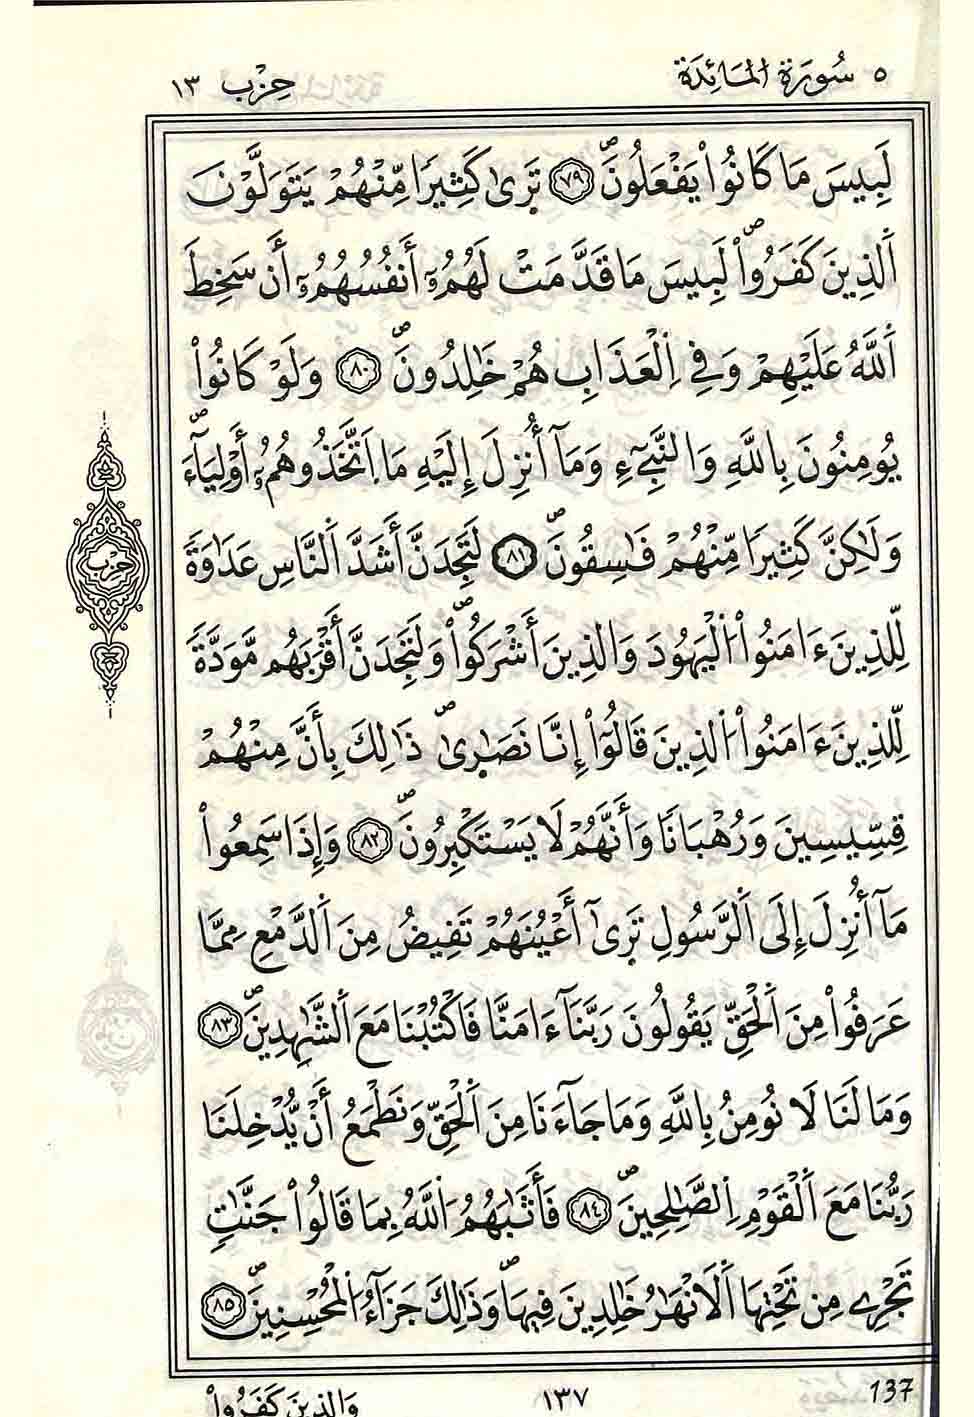 ٥ سُورَةُ المَائِدَة حِزْب ١٣
لَبِيسَ مَا كَانُواْ يَفْعَلُونَۖ ٧٩ تَر۪يٰ كَثِيراٗ مِّنْهُمْ يَتَوَلَّوْنَ
اَ۬لذِينَ كَفَرُواْۖ لَبِيسَ مَا قَدَّمَتْ لَهُمُۥٓ أَنفُسُهُمُۥٓ أَن سَخِطَ
اَ۬للَّهُ عَلَيْهِمْ وَفِے اِ۬لْعَذَابِ هُمْ خَٰلِدُونَۖ ٨٠ وَلَوْ كَانُواْ
يُومِنُونَ بِاللَّهِ وَالنَّبِےٓءِ وَمَآ أُنزِلَ إِلَيْهِ مَا اَ۪تَّخَذُوهُمُۥٓ أَوْلِيَآءَۖ
وَلَٰكِنَّ كَثِيراٗ مِّنْهُمْ فَٰسِقُونَۖ ٨١ لَتَجِدَنَّ أَشَدَّ اَ۬لنَّاسِ عَدَٰوَةٗ
لِّلذِينَ ءَامَنُواْ اُ۬لْيَهُودَ وَالذِينَ أَشْرَكُواْۖ وَلَتَجِدَنَّ أَقْرَبَهُم مَّوَدَّةٗ
لِّلذِينَ ءَامَنُواْ اُ۬لذِينَ قَالُوٓاْ إِنَّا نَصَٰر۪يٰۖ ذَٰلِكَ بِأَنَّ مِنْهُمْ
قِسِّيسِينَ وَرُهْبَاناٗ وَأَنَّهُمْ لَا يَسْتَكْبِرُونَۖ ٨٢ وَإِذَا سَمِعُواْ
مَآ أُنزِلَ إِلَى اَ۬لرَّسُولِ تَر۪يٰٓ أَعْيُنَهُمْ تَفِيضُ مِنَ اَ۬لدَّمْعِ مِمَّا
عَرَفُواْ مِنَ اَ۬لْحَقِّ يَقُولُونَ رَبَّنَآ ءَامَنَّا فَاكْتُبْنَا مَعَ اَ۬لشَّٰهِدِينَۖ ٨٣
وَمَا لَنَا لَا نُومِنُ بِاللَّهِ وَمَا جَآءَنَا مِنَ اَ۬لْحَقِّ وَنَطْمَعُ أَنْ يُّدْخِلَنَا
رَبُّنَا مَعَ اَ۬لْقَوْمِ اِ۬لصَّٰلِحِينَۖ ٨٤ فَأَثَٰبَهُمُ اُ۬للَّهُ بِمَا قَالُواْ جَنَّٰتٖ
تَجْرِے مِن تَحْتِهَا اَ۬لَانْهَٰرُ خَٰلِدِينَ فِيهَاۖ وَذَٰلِكَ جَزَآءُ اُ۬لْمُحْسِنِينَۖ ٨٥
حِزْب
137
١٣٧
وَالذِينَ كَفَرُواْ